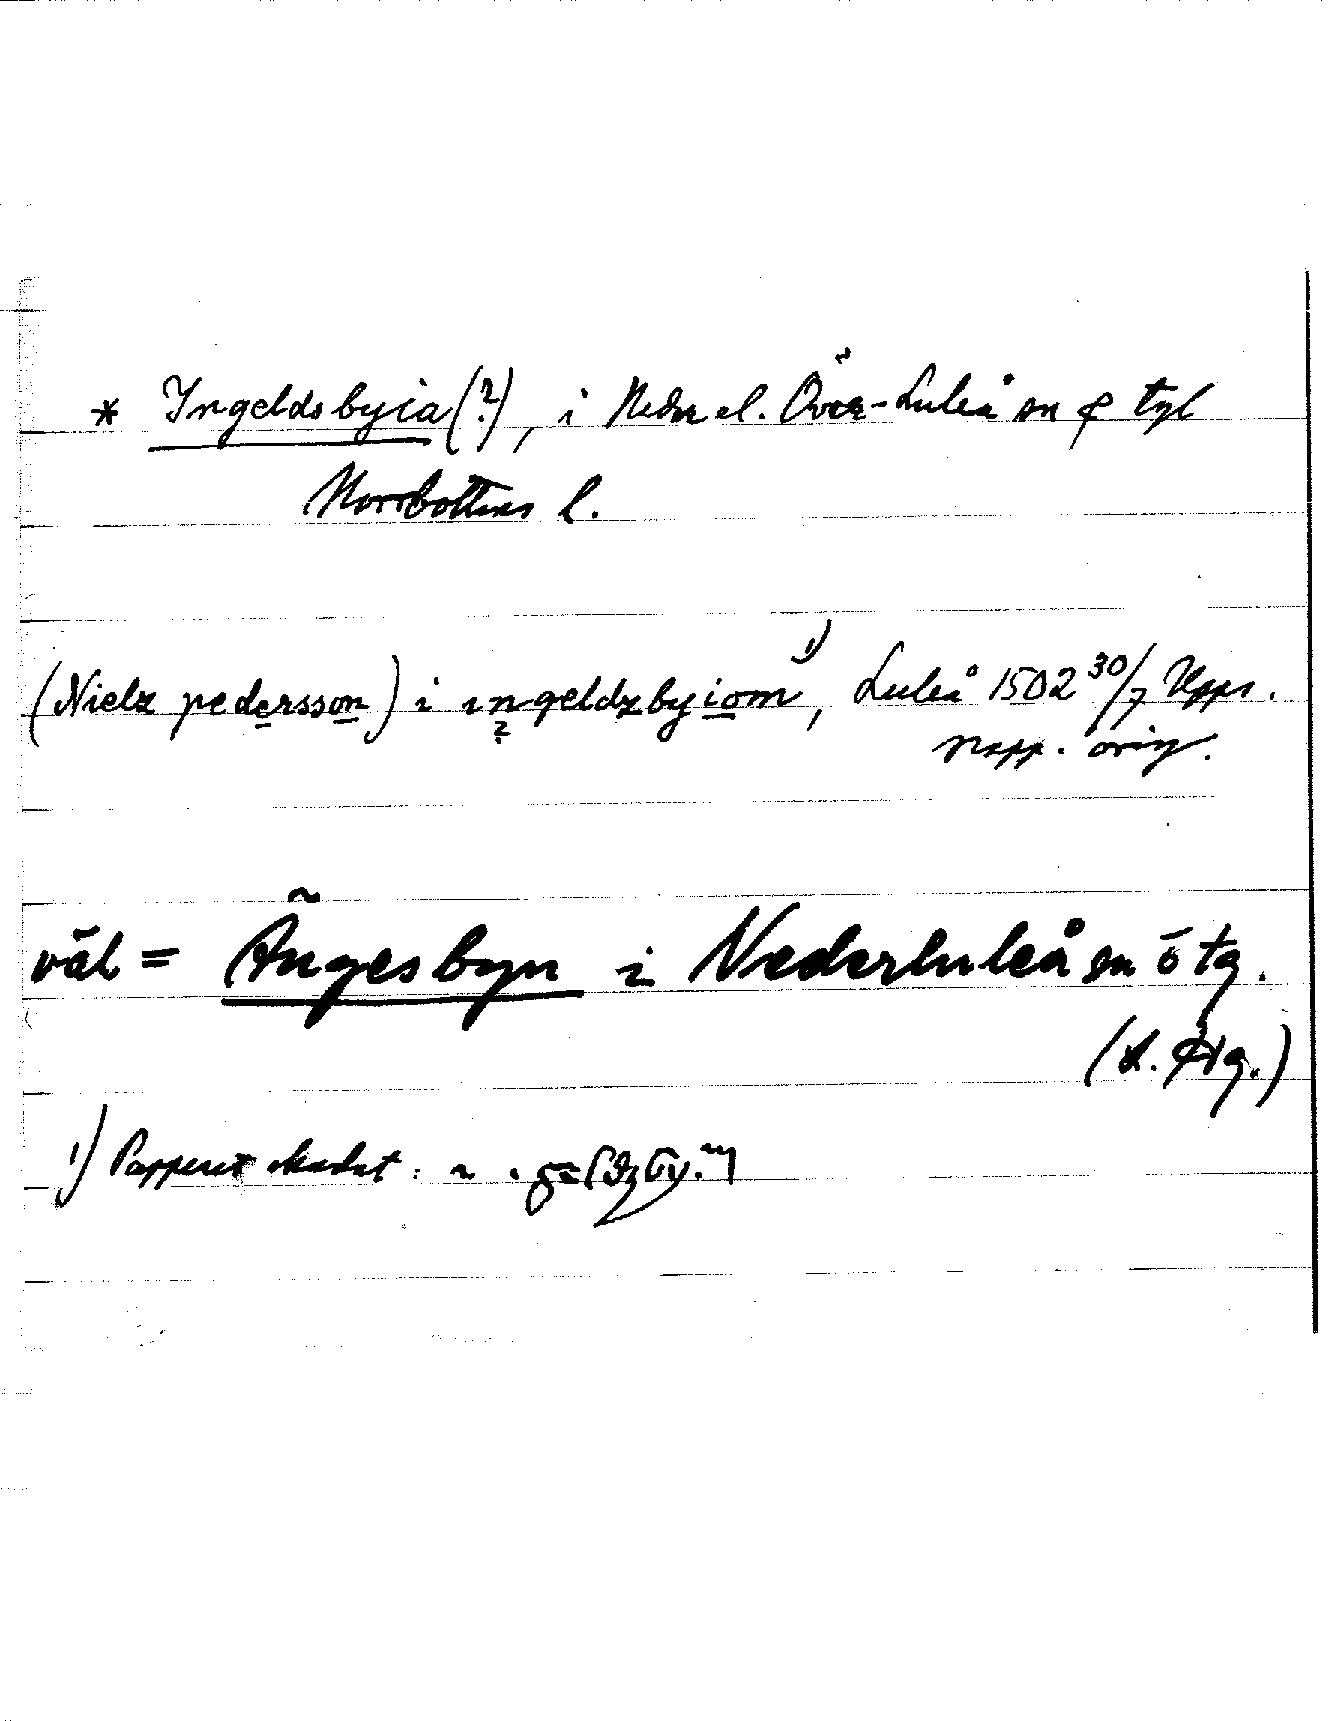 * Ingeldsbyia (?), i Neder el. Över-Luleå sn
Norrbottens l.
(Nielz pedersson) i ingeldzbyiom 1), Luleå 1502 30/7 Upps.
?
papp. orig.
väl = Ängesbyn i Nederluleå sn ö tg.
1) Papperet skadat: